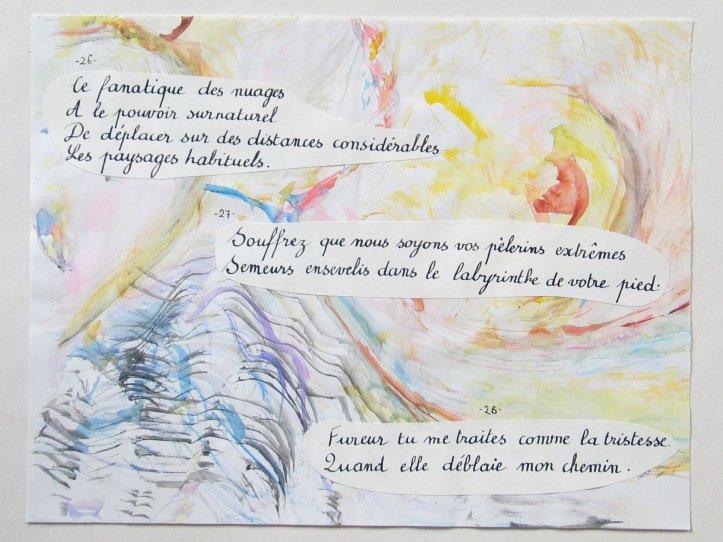 -26-
Ce fanatique des nuages
A le pouvoir surnaturel
De déplacer sur des distances considérables
Les paysages habituels.
-27-
Souffrez que nous soyons vos pèlerins extrêmes
Semeurs ensevelis dans le labyrinthe de votre pied.
-28-
Fureur tu me traites comme la tristesse
Quand elle déblaie mon chemin.